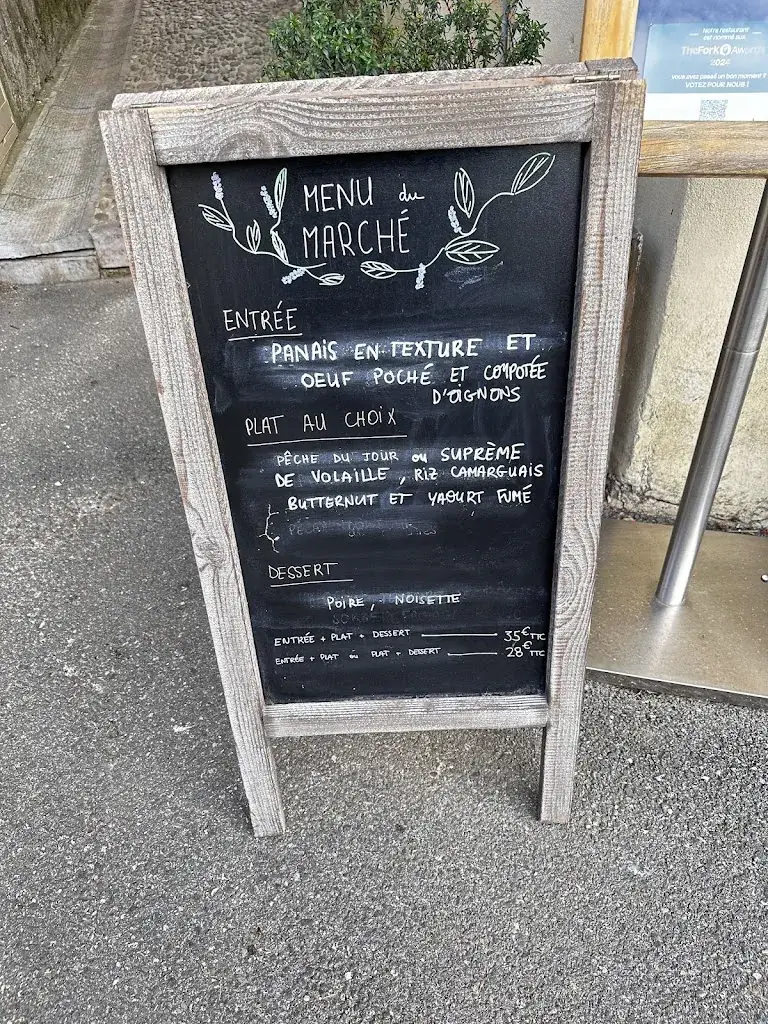 Notre restaurant
est nommé aux
TheFork Awards
2024
Vous avez passé un bon moment ?
VOTEZ POUR NOUS !
MENU du
MARCHÉ
ENTRÉE
PANAIS EN TEXTURE ET
OEUF POCHÉ ET COMPOTÉE
D'OIGNONS
PLAT AU CHOIX
PÊCHE DU JOUR ou SUPRÈME
DE VOLAILLE, RIZ CAMARGUAIS
BUTTERNUT ET YAOURT FUMÉ
DESSERT
POIRE, NOISETTE
ENTRÉE + PLAT + DESSERT 35€ TTC
ENTRÉE + PLAT ou PLAT + DESSERT 28€ TTC